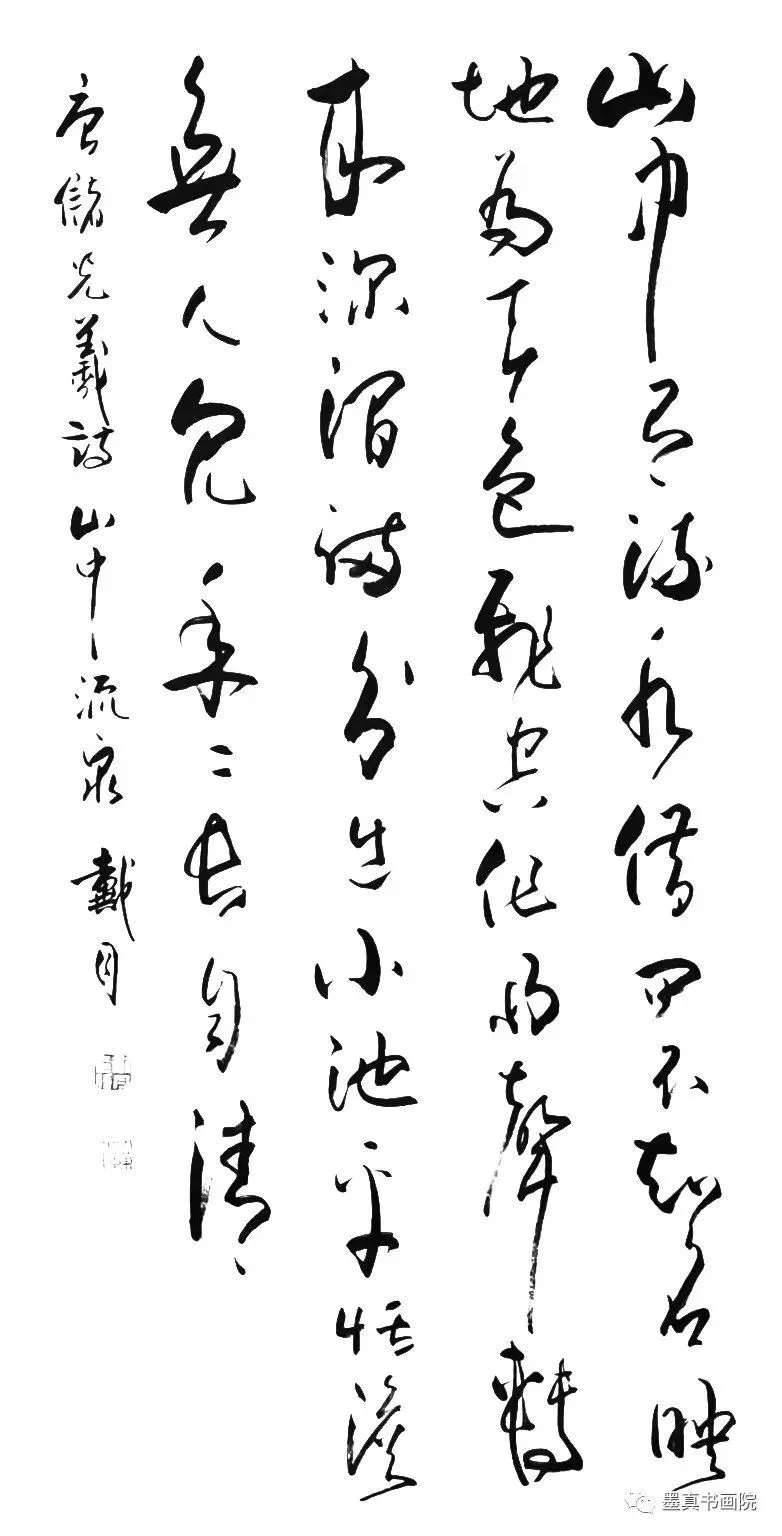 山中有流水借問不知名映
地為天色飛空作雨聲轉
來深澗滿分出小池平恬澹
無人見年々長自清
唐儲光羲詩山中流泉 戴月
墨真书画院